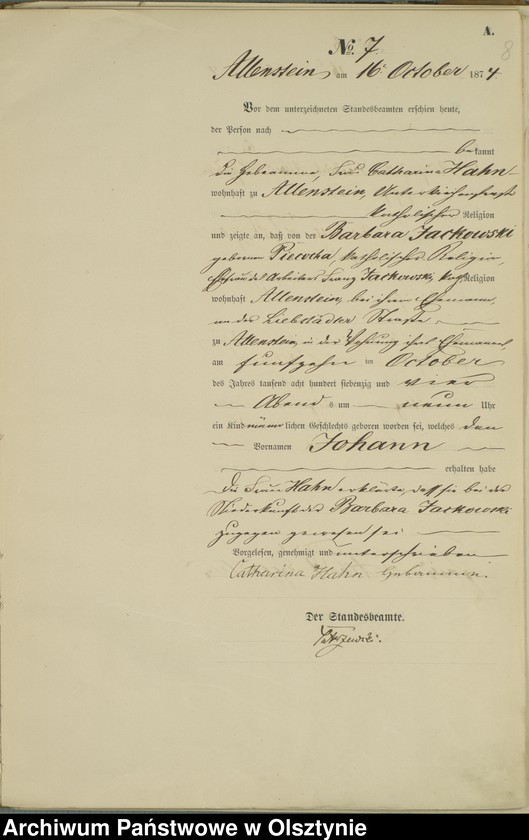 A.
8
No. 7
Allenstein am 16t October 1874
Vor dem unterzeichneten Standesbeamten erschien heute,
der Person nach
bekannt
die Hebeamme, Frau Catharina Hahn
wohnhaft zu Allenstein, Unterkirchenstraße
katholischer Religion
und zeigte an, daß von der Barbara Jackowski
geborenen Piecocha, katholischer Religion,
Ehefrau des Arbeiters Franz Jackowski, kath. Religion
wohnhaft Allenstein, bei ihrem Ehemann,
an der Liebstädter Straße
zu Allenstein, in der Wohnung ihres Ehemannes,
am funfzehn ten October
des Jahres tausend acht hundert siebenzig und vier
Abends um neun Uhr
ein Kind männlichen Geschlechts geboren worden sei, welches den
Vornamen Johann
erhalten habe
Die Frau Hahn erklärte, daß sie bei der
Niederkunft der Barbara Jackowski
zugegen gewesen sei
Vorgelesen, genehmigt und unterschrieben
Catharina Hahn Hebamme.
Der Standesbeamte.
Archiwum Państwowe w Olsztynie